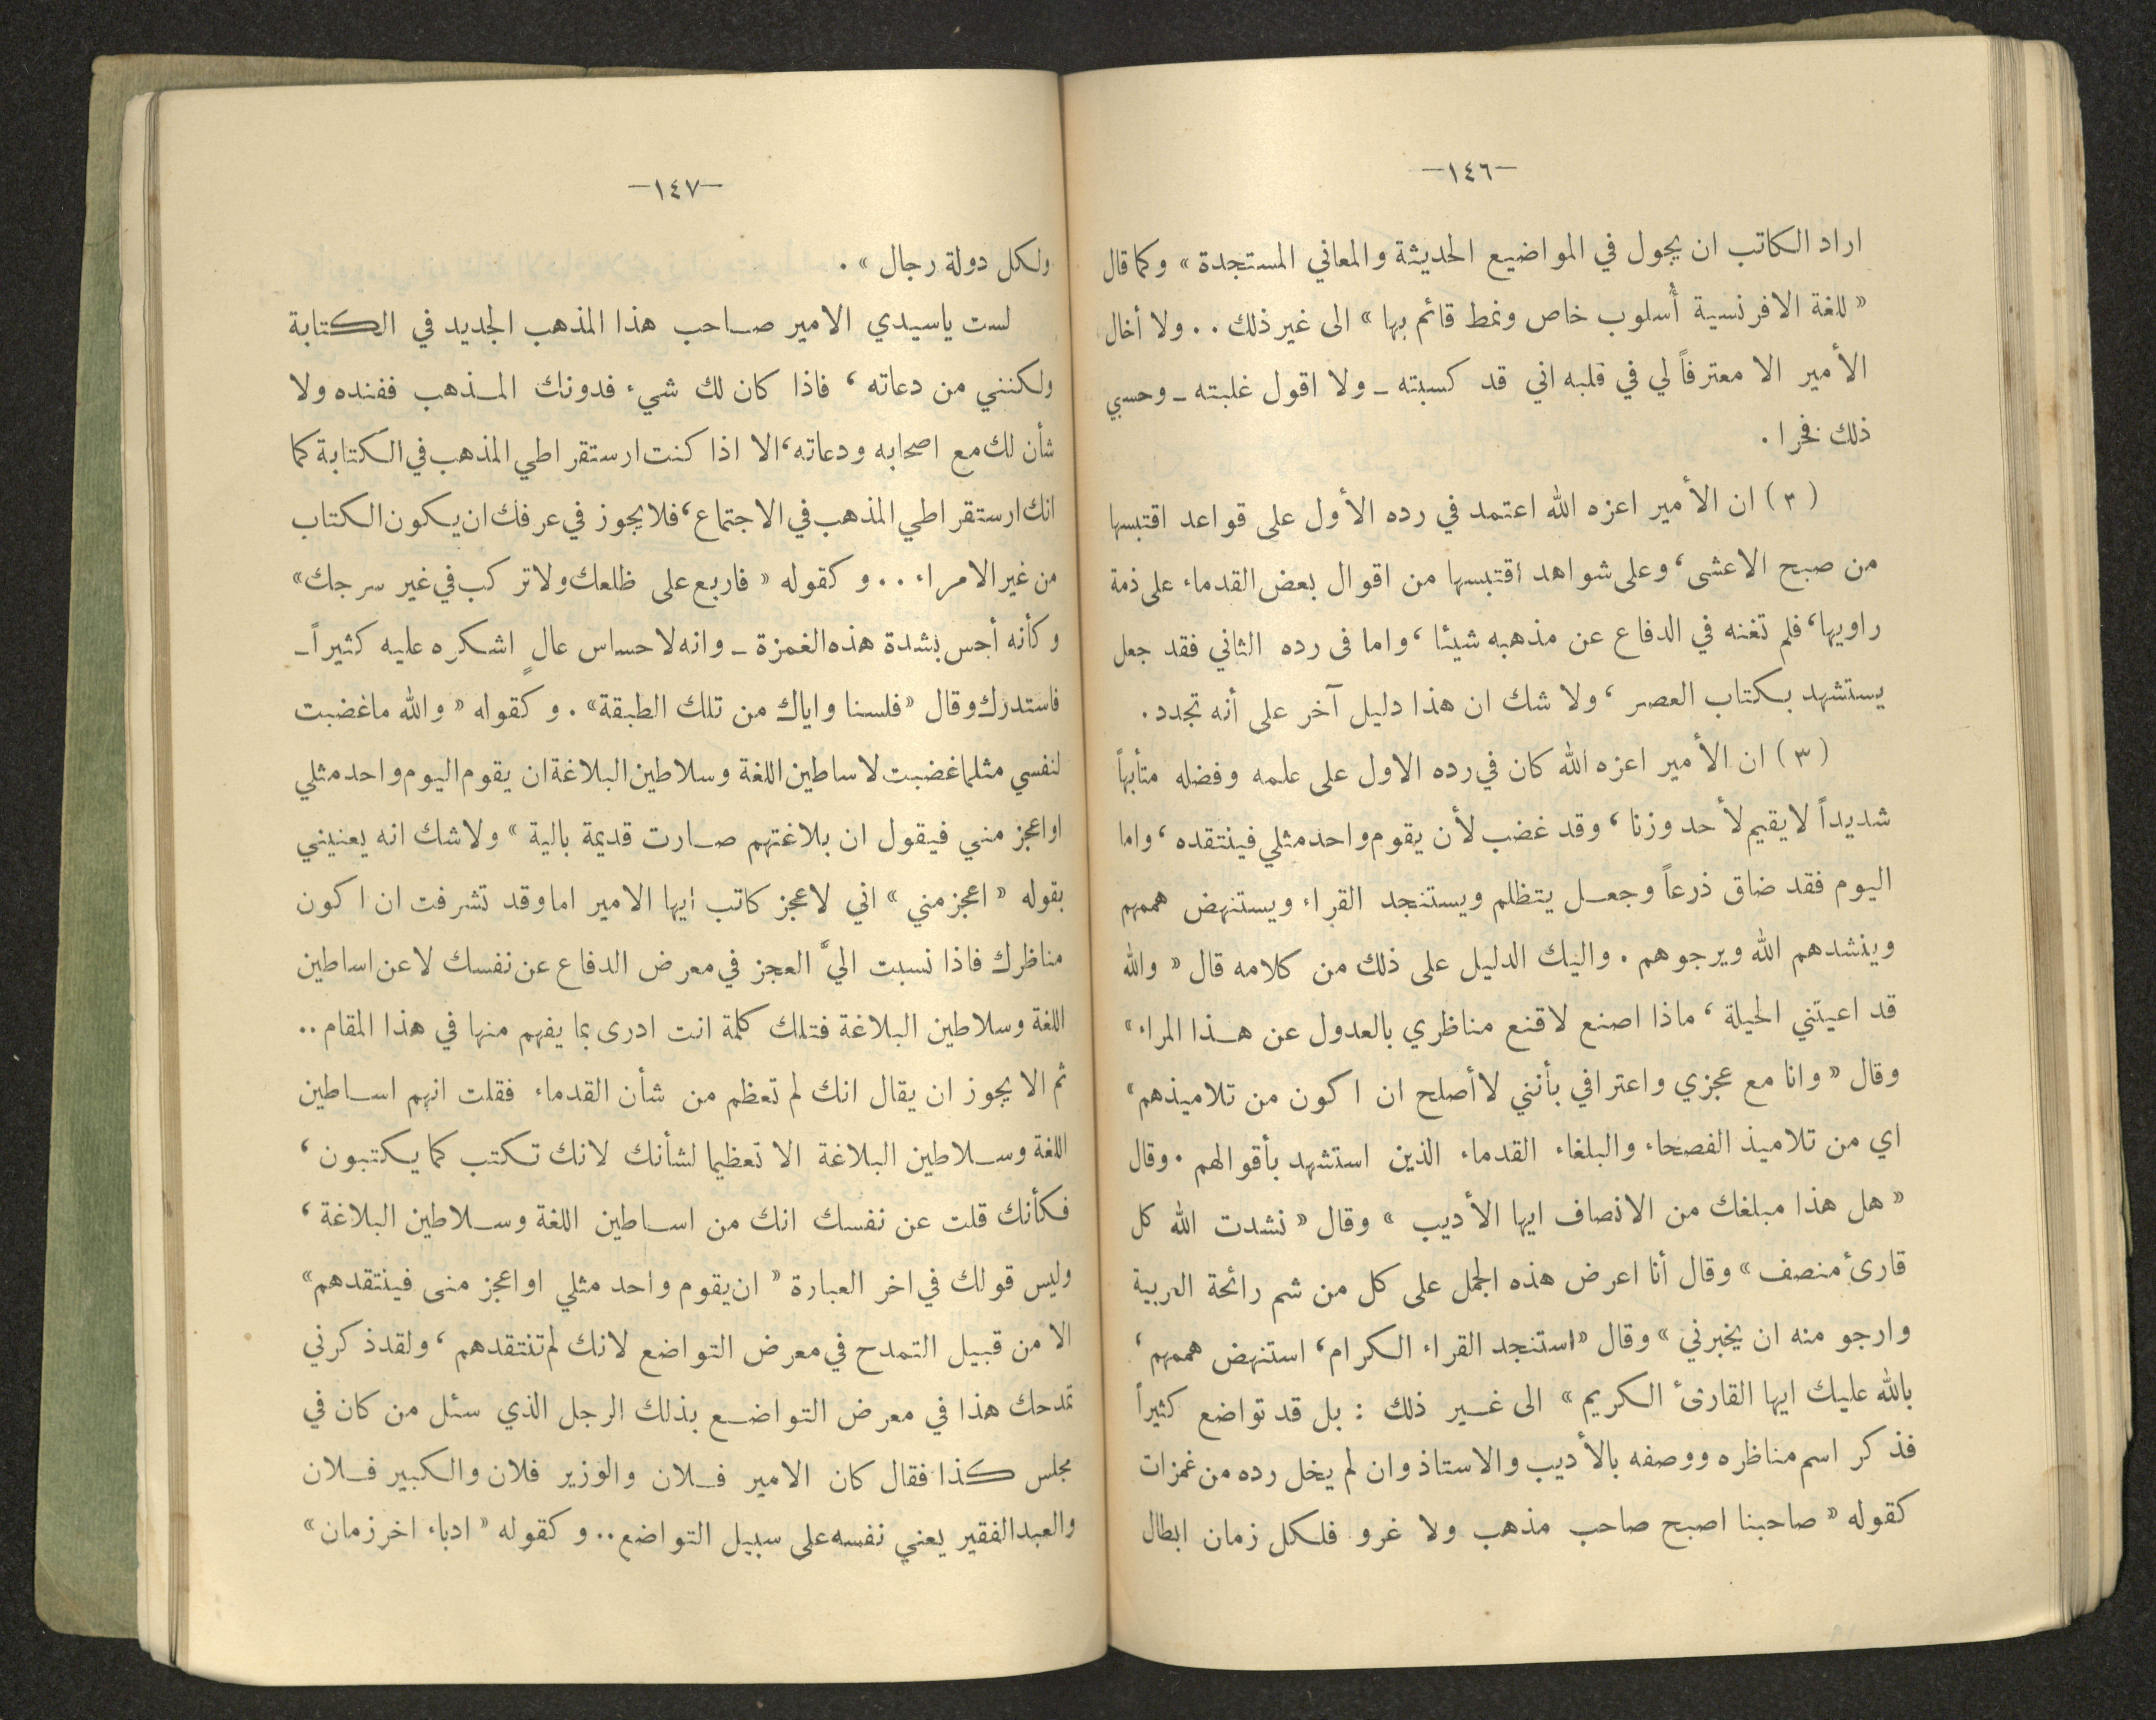 —١٤٦—
اراد الكاتب ان يجول في المواضيع الحديثة والمعاني المستجدة » وكما قال
« للغة الافرنسية أسلوب خاص ونمط قائم بها » الى غير ذلك . . ولا أخال
الأمير الا معترفاً لي في قلبه اني قد كسبته ـ ولا اقول غلبته ـ وحسبي
ذلك فخرا .
( ٢ ) ان الأمير اعزه الله اعتمد في رده الأول على قواعد اقتبسها
من صبح الاعشى ، وعلى شواهد اقتبسها من اقوال بعض القدماء على ذمة
راويها ، فلم تغنه في الدفاع عن مذهبه شيئا ، واما فى رده الثاني فقد جعل
يستشهد بكتاب العصر ، ولا شك ان هذا دليل آخر على أنه تجدد .
( ٣ ) ان الأمير اعزه الله كان في رده الاول على علمه وفضله متأبهاً
شديداً لا يقيم لأحد وزنا ، وقد غضب لأن يقوم واحد مثلي فينتقده ، واما
اليوم فقد ضاق ذرعاً وجعل يتظلم ويستنجد القراء ويستنهض هممهم
وينشدهم الله ويرجوهم . واليك الدليل على ذلك من كلامه قال « والله
قد اعيتني الحيلة ، ماذا اصنع لاقنع مناظري بالعدول عن هذا المراء »
وقال « وانا مع عجزي واعترافي بأنني لا أصلح ان اكون من تلاميذهم »
اي من تلاميذ الفصحاء والبلغاء القدماء الذين استشهد بأقوالهم . وقال
« هل هذا مبلغك من الانصاف ايها الأديب » وقال « نشدت الله كل
قارئ منصف » وقال أنا اعرض هذه الجمل على كل من شم رائحة العربية
وارجو منه ان يخبرني » وقال « استنجد القراء الكرام ، استنهض هممهم ،
بالله عليك ايها القارئ الكريم » الى غير ذلك : بل قد تواضع كثيراً
فذكر اسم مناظره ووصفه بالأديب والاستاذ وان لم يخل رده من غمزات
كقوله « صاحبنا اصبح صاحب مذهب ولا غرو فلكل زمان ابطال
—١٤٧—
ولكل دولة رجال » .
لست ياسيدي الامير صاحب هذا المذهب الجديد في الكتابة
ولكنني من دعاته ، فاذا كان لك شيء فدونك المذهب ففنده ولا
شأن لك مع اصحابه ودعاته ، الا اذا كنت ارستقراطي المذهب في الكتابة كما
انك ارستقراطي المذهب في الاجتماع ، فلا يجوز في عرفك ان يكون الكتاب
من غير الامراء . . وكقوله « فاربع على ظلعك ولا تركب في غير سرجك »
وكأنه أحس بشدة هذه الغمزة ـ وانه لاحساس عالٍ اشكره عليه كثيراً ـ
فاستدرك وقال « فلسنا واياك من تلك الطبقة » . وكقوله « والله ماغضبت
لنفسي مثلما غضبت لاساطين اللغة وسلاطين البلاغة ان يقوم اليوم واحد مثلي
او اعجز مني فيقول ان بلاغتهم صارت قديمة بالية » ولا شك انه يعنيني
بقوله « اعجز مني » اني لاعجز كاتب ايها الامير اما وقد تشرفت ان اكون
مناظرك فاذا نسبت اليَّ العجز في معرض الدفاع عن نفسك لا عن اساطين
اللغة وسلاطين البلاغة فتلك كلمة انت ادرى بما يفهم منها في هذا المقام . .
ثم الا يجوز ان يقال انك لم تعظم من شأن القدماء فقلت انهم اساطين
اللغة وسلاطين البلاغة الا تعظيما لشأنك لانك تكتب كما يكتبون ،
فكأنك قلت عن نفسك انك من اساطين اللغة وسلاطين البلاغة ،
وليس قولك في اخر العبارة « ان يقوم واحد مثلي او اعجز منى فينتقدهم »
الا من قبيل التمدح في معرض التواضع لانك لم تنتقدهم ، ولقد ذكرني
تمدحك هذا في معرض التواضع بذلك الرجل الذي سئل من كان في
مجلس كذا فقال كان الامير فلان والوزير فلان والكبير فلان
والعبد الفقير يعني نفسه على سبيل التواضع . . وكقوله « ادباء اخر زمان »